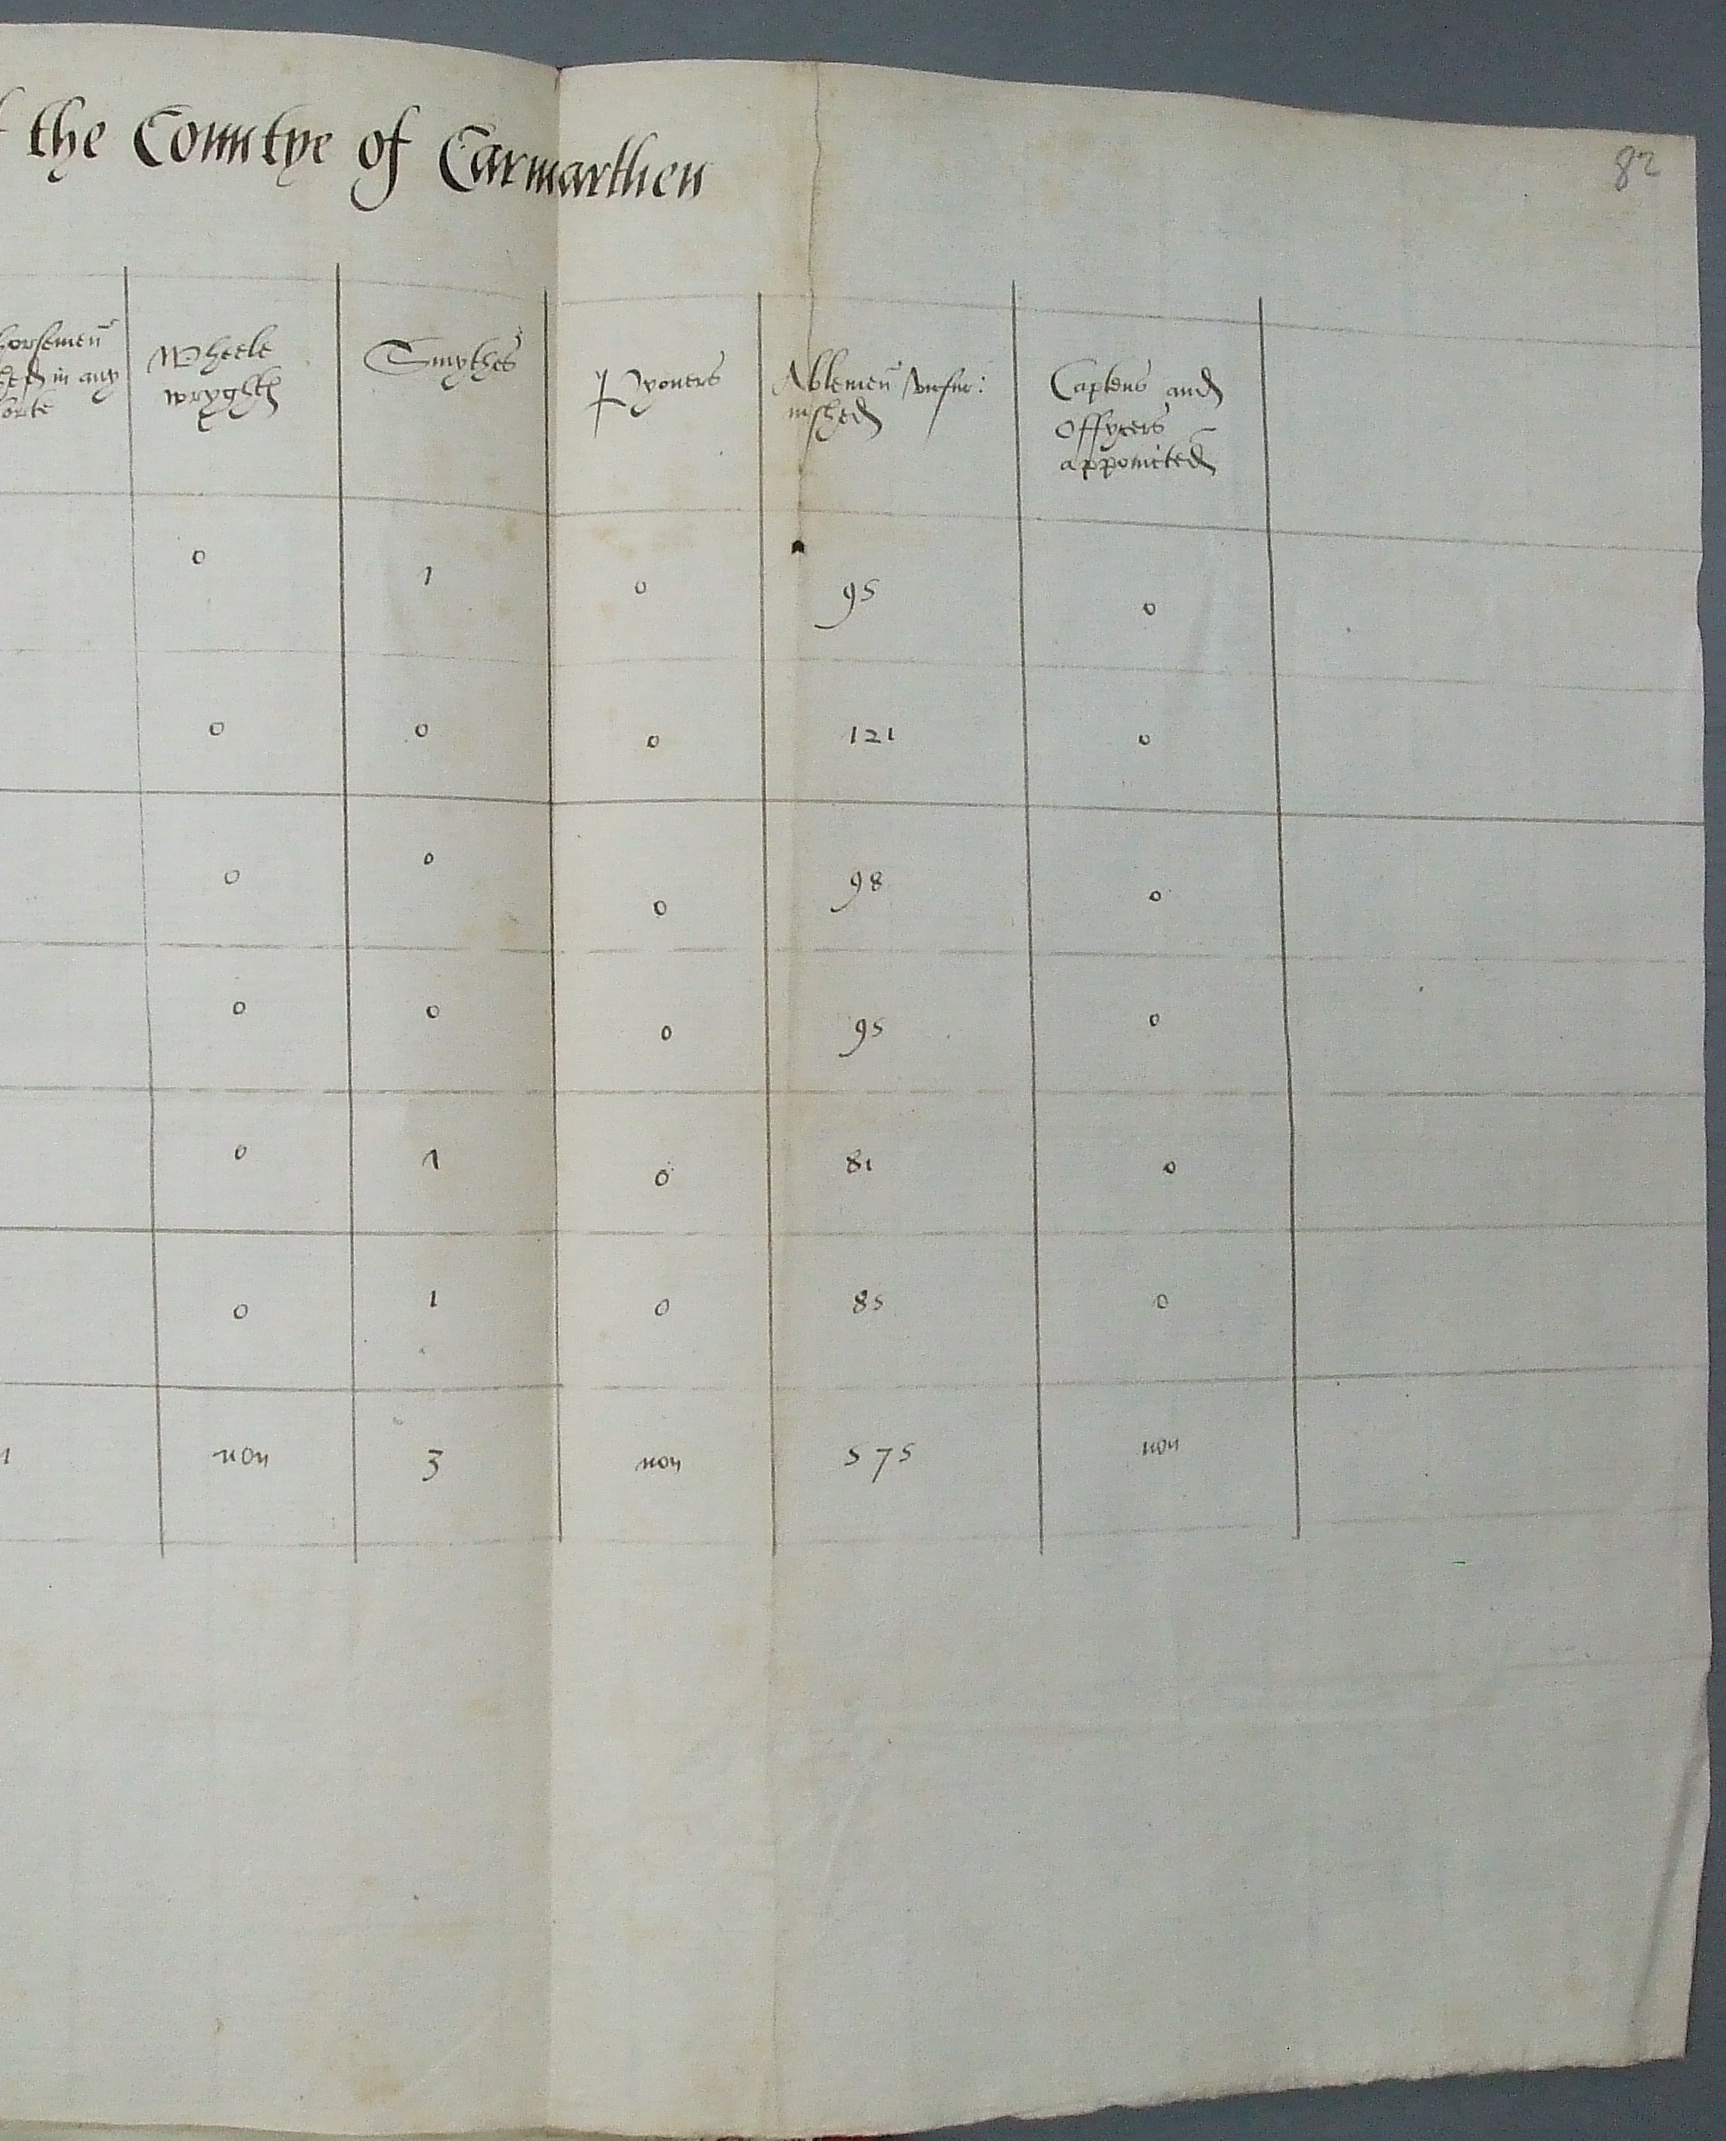 the Countye of Carmarthen
82
horsemen in any sorte
Wheele wryghtes
Smythes
Pyoners
Ablemen vnfur: nished
Captens and Offycers appointed
0 1 0 95 0
0 0 0 121 0
0 0 0 98 0
0 0 0 95 0
0 1 0 81 0
0 1 0 85 0
non 3 non 575 non